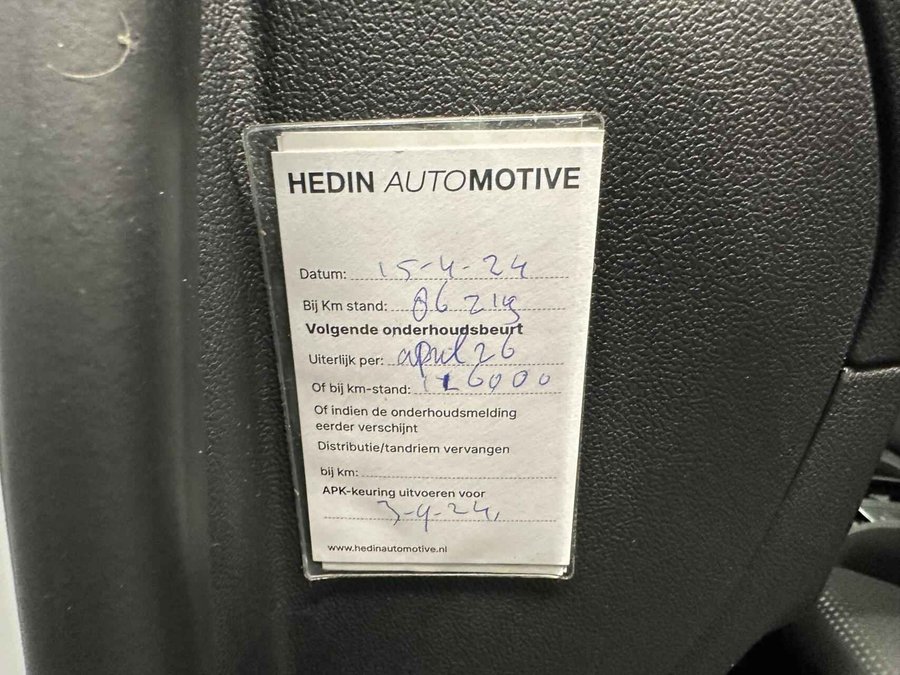 HEDIN AUTOMOTIVE
Datum: 15-4-24
Bij Km stand:
Volgende onderhoudsbeurt
Uiterlijk per: april 26
Of bij km-stand: 126000
Of indien de onderhoudsmelding
eerder verschijnt
Distributie/tandriem vervangen
bij km:
APK-keuring uitvoeren voor
www.hedinautomotive.nl